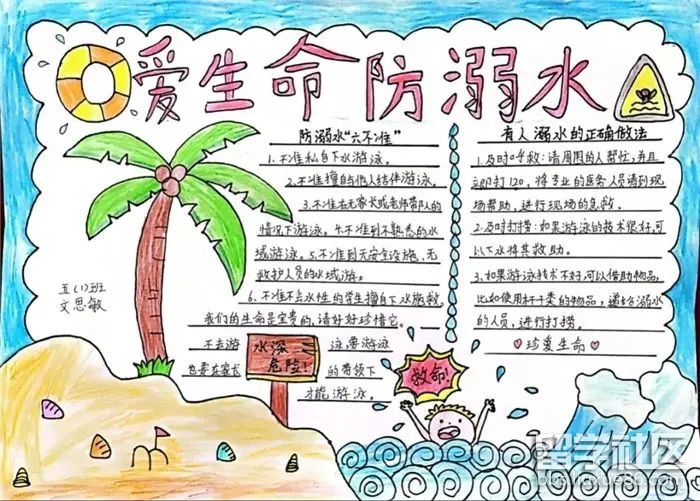 爱生命 防溺水
防溺水“六不准”
1.不准私自下水游泳。
2.不准擅自与他人结伴游泳。
3.不准在无家长或老师带队的
情况下游泳。4.不准到不熟悉的水
域游泳。5.不准到无安全设施、无
救护人员的水域游。
6.不准不会水性的学生擅自下水施救。
我们的生命是宝贵的,请好好珍惜它。
不去游 泳,要游泳
也要在家长 的带领下
才能游泳。
水深
危险!
五(1)班
文思敏
有人溺水的正确做法
1.及时呼救:请周围的人帮忙,并且
立即打120,将专业的医务人员请到现
场帮助,进行现场的急救。
2.及时打捞:如果游泳的技术很好,可
以下水将其救助。
3.如果游泳技术不好,可以借助物品,
比如使用杆子类的物品,递给溺水
的人员,进行打捞。
♡珍爱生命♡
救命!
留学社区